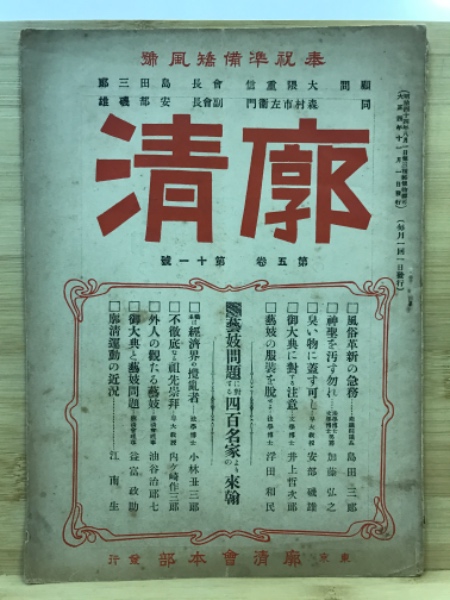 奉祝準備矯風號
顧問 大隈重信 會長 島田三郎
同 森村市左衞門 副會長 安部磯雄
廓清
第五卷 第十一號
(每月一回一日發行)
□風俗革新の急務 島田三郎
□神聖を汚す勿れ 加藤弘之
□臭い物に蓋す可し 安部磯雄
□御大典に對する注意 井上哲次郎
□藝妓の服裝を脫せよ 法學博士 浮田和民
藝妓問題に對する四百名家よりの來翰
□經濟界の攪亂者 法學博士 小林丑三郎
□不徹底なる祖先崇拜 早大敎授 内ケ崎作三郎
□外人の觀たる藝妓 油谷治郎七
□御大典と藝妓問題 益富政助
□廓清運動の近況 江南生
東京 廓清會本部 發行